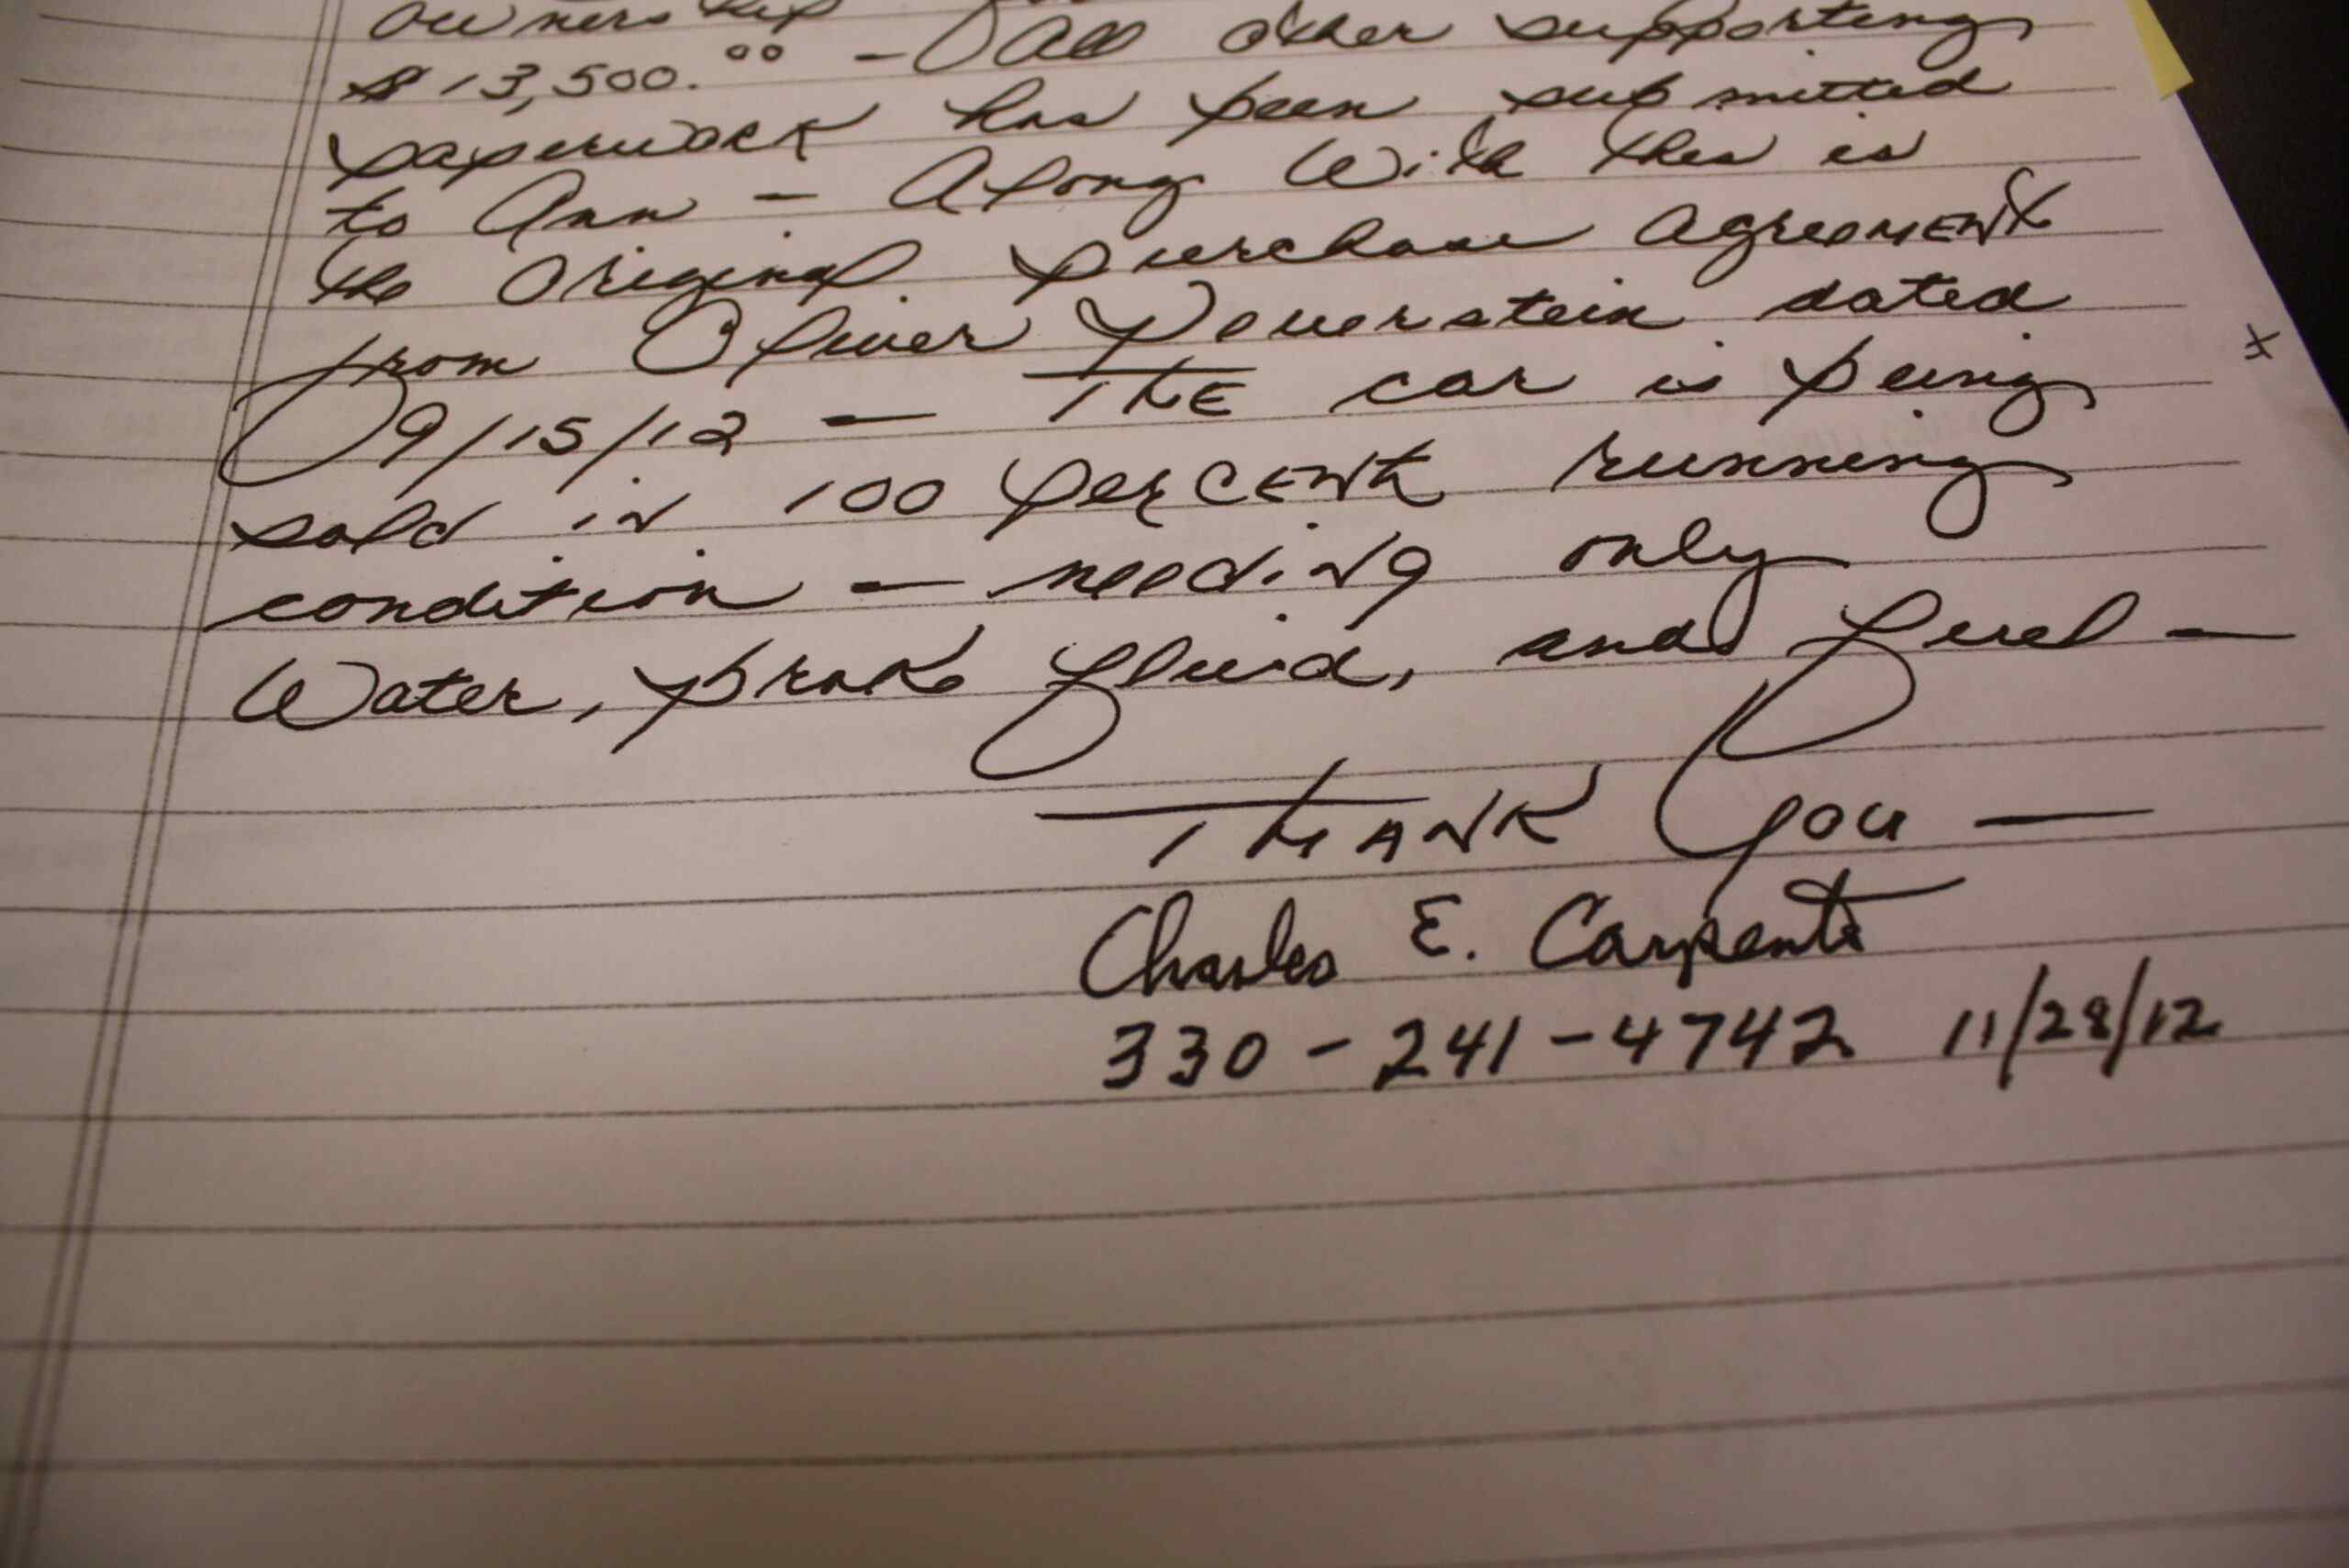 ownership
$13,500.00 - All other supporting
paperwork has been submitted
to Ann - Along With this is
the Original purchase agreemENt
from Oliver dated
09/15/12 - THE car is being
sold in 100 percENt running
condition - needing only
Water, brake fluid, and fuel -
THANK you -
Charles E. Carpenter
330-241-4742 11/28/12